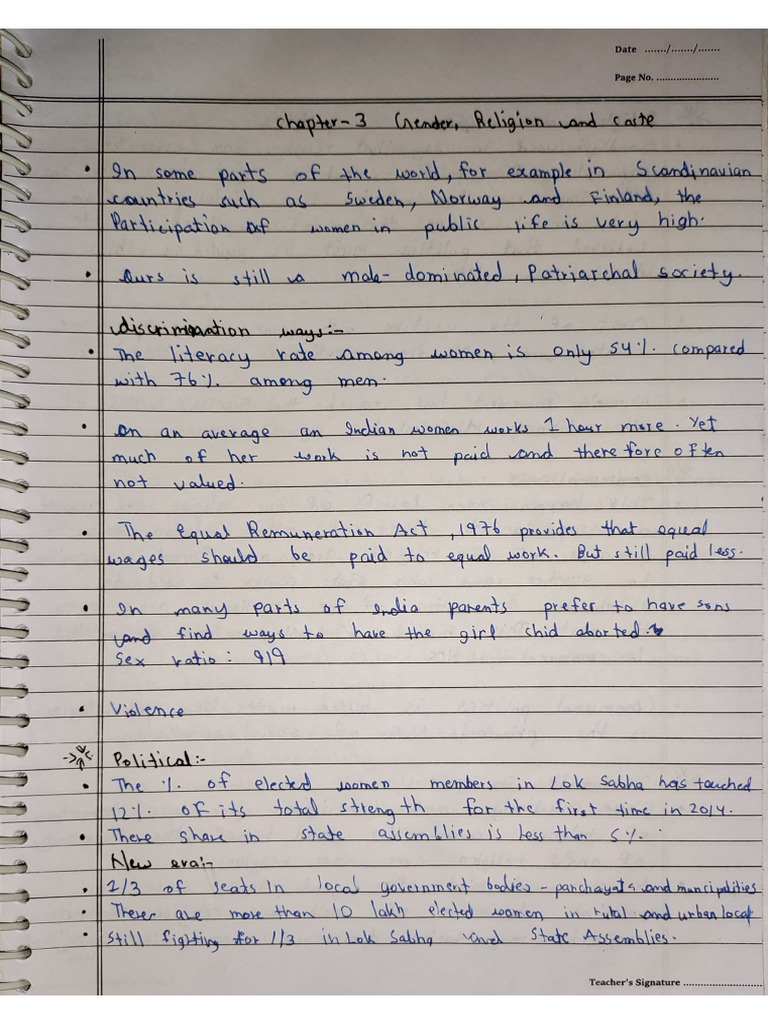 Date ....../......./.......
Page No. ......................
Chapter-3 Gender, Religion and caste
• In some parts of the world, for example in Scandinavian
countries such as Sweden, Norway and Finland, the
Participation of women in public life is very high.
• Ours is still a male-dominated, Patriarchal society.
discrimination ways:-
• The literacy rate among women is only 54% compared
with 76% among men.
• On an average an Indian women works 1 hour more. Yet
much of her work is not paid and therefore often
not valued.
• The Equal Remuneration Act, 1976 provides that equal
wages should be paid to equal work. But still paid less.
• In many parts of India parents prefer to have sons
and find ways to have the girl chid aborted.
Sex ratio: 919
• Violence
Political:-
• The % of elected women members in Lok Sabha has touched
12% of its total strength for the first time in 2014.
• There share in state assemblies is less than 5%.
New era:-
• 2/3 of seats In local government bodies - panchayats and muncipalities
• There are more than 10 lakh elected women in rural and urban local
• Still fighting for 1/3 in Lok Sabha and State Assemblies.
Teacher's Signature ............................